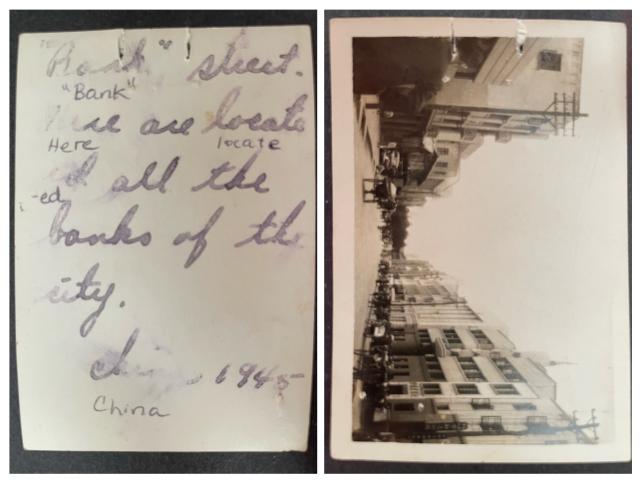 "Bank" street.
"Bank"
Here are locate
Here locate
-ed all the
-ed
banks of the
city.
China 1945
China